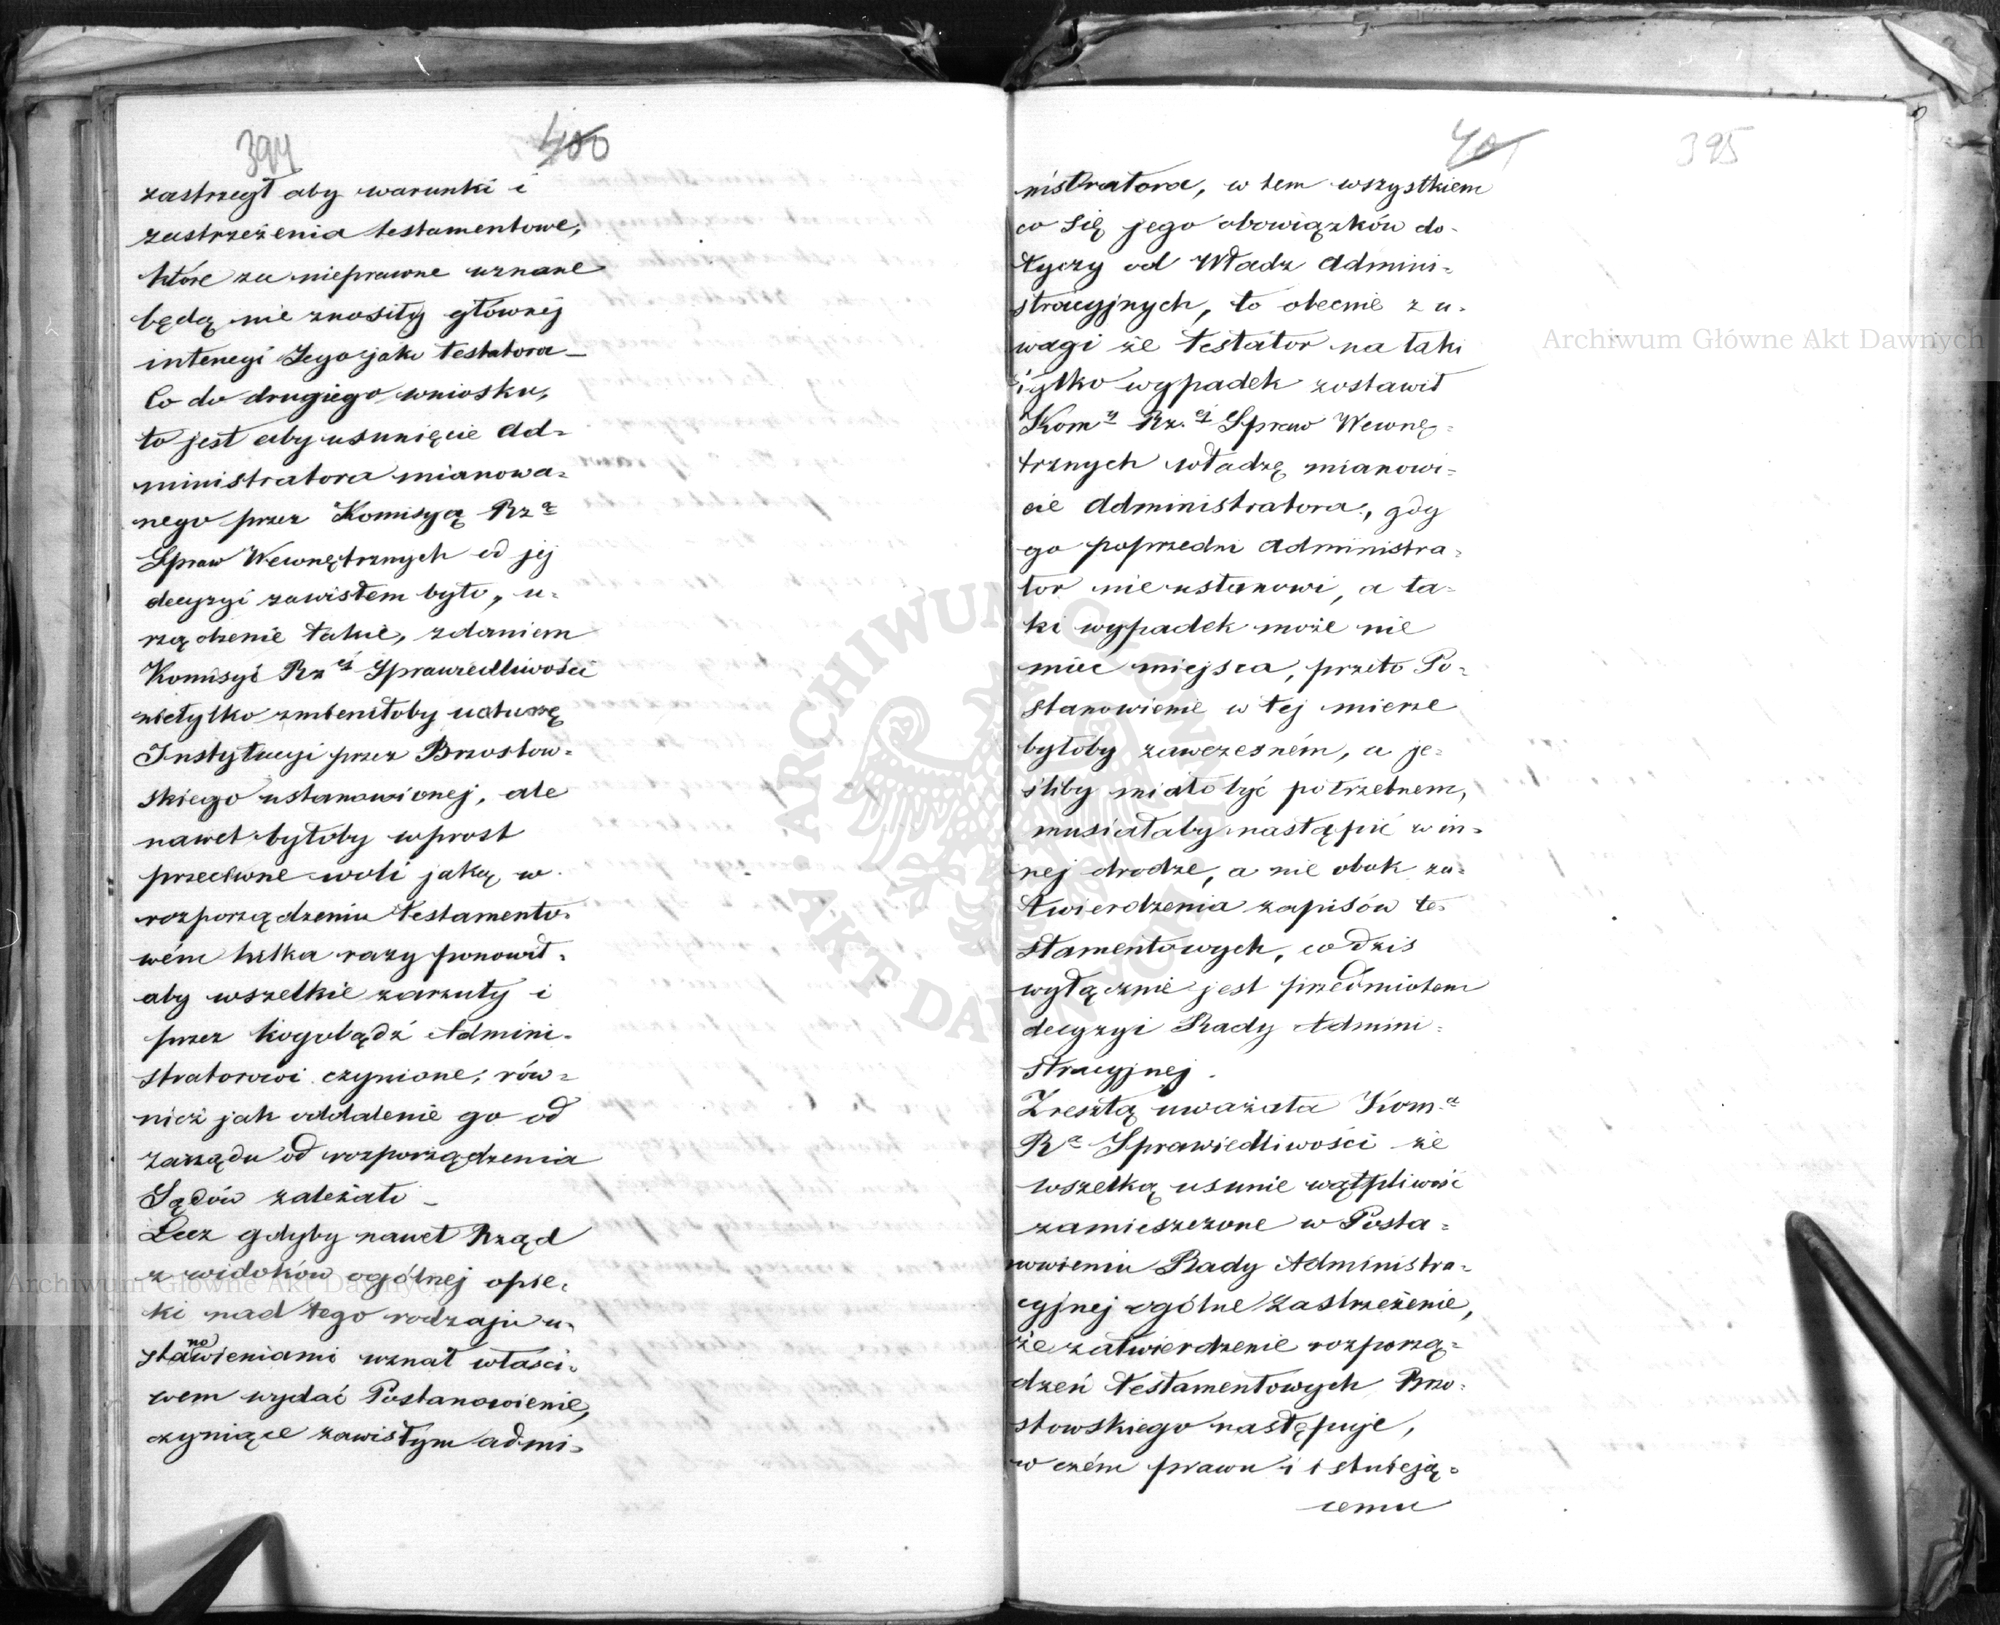 394 400
zastrzegł aby warunki i
zastrzeżenia testamentowe,
które za nieprawne uznane
będą nie znosiły głównéj
intencyi Jego jako testatora_
Co do drugiego wniosku,
to jest aby usunięcie Ad=
ministratora mianowa=
nego przez Komisyą Rzą
Spraw Wewnętrznych od jej
decyzyi zawisłem było, u=
rządzenie takie, zdaniem
Komisyi Rzéj Sprawiedliwości
nietylko zmieniłoby naturę
Instytucyi przez Brzostow=
skiego ustanowionej, ale
nawet byłoby wprost
przeciwne woli jaką w
rozporządzeniu testamento=
wém kilka razy ponowił,
aby wszelkie zarzuty i
przez kogobądź Admini=
stratorowi czynione, rów=
nież jak oddalenie go od
zarządu od rozporządzenia
Sądów zależało_
Lecz gdyby nawet Rząd
z widoków ogólnej opie=
ki nad tego rodzaju u=
stanowieniami uznał właści=
wem wydać Postanowienie,
czyniące zawisłym admi=
401 395
nistratora, w tem wszystkiem
co się jego obowiązków do=
tyczy od Władz Admini=
stracyjnych, to obecnie z u=
wagi że testator na taki
tylko wypadek zostawił
Komy Rz.éj Spraw Wewnę=
trznych władzę mianowi=
cie Administratora, gdy
go poprzedni Administra=
tor nie ustanowi, a ta=
ki wypadek może nie
mieć miejsca, przeto Po=
stanowienie w tej mierze
byłoby zawczesném, a je=
śliby miało być potrzebnem,
musiałaby nastąpić w in=
nej drodze, a nie obok za=
twierdzenia zapisów te=
stamentowych, co dziś
wyłącznie jest przedmiotem
decyzyi Rady Admini=
stracyjnej.
Zresztą uważała Kom.a
Ra Sprawiedliwości że
wszelką usunie wątpliwość
zamieszczone w Posta=
nowieniu Rady Administra=
cyjnej ogólne zastrzeżenie,
że zatwierdzenie rozporzą=
dzeń testamentowych Brzo=
stowskiego następuje,
w czém prawu i istnieją=
cemu
Archiwum Główne Akt Dawnych
Archiwum Główne Akt Dawnych
ARCHIWUM GŁÓWNE AKT DAWNYCH